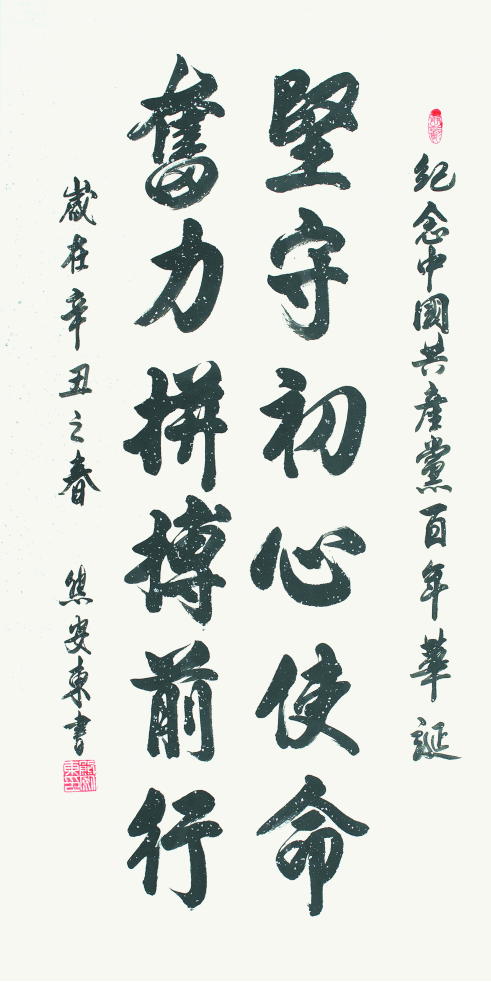 紀念中國共產黨百年華誕
堅守初心使命
奮力拼搏前行
歲在辛丑之春 熊安東書